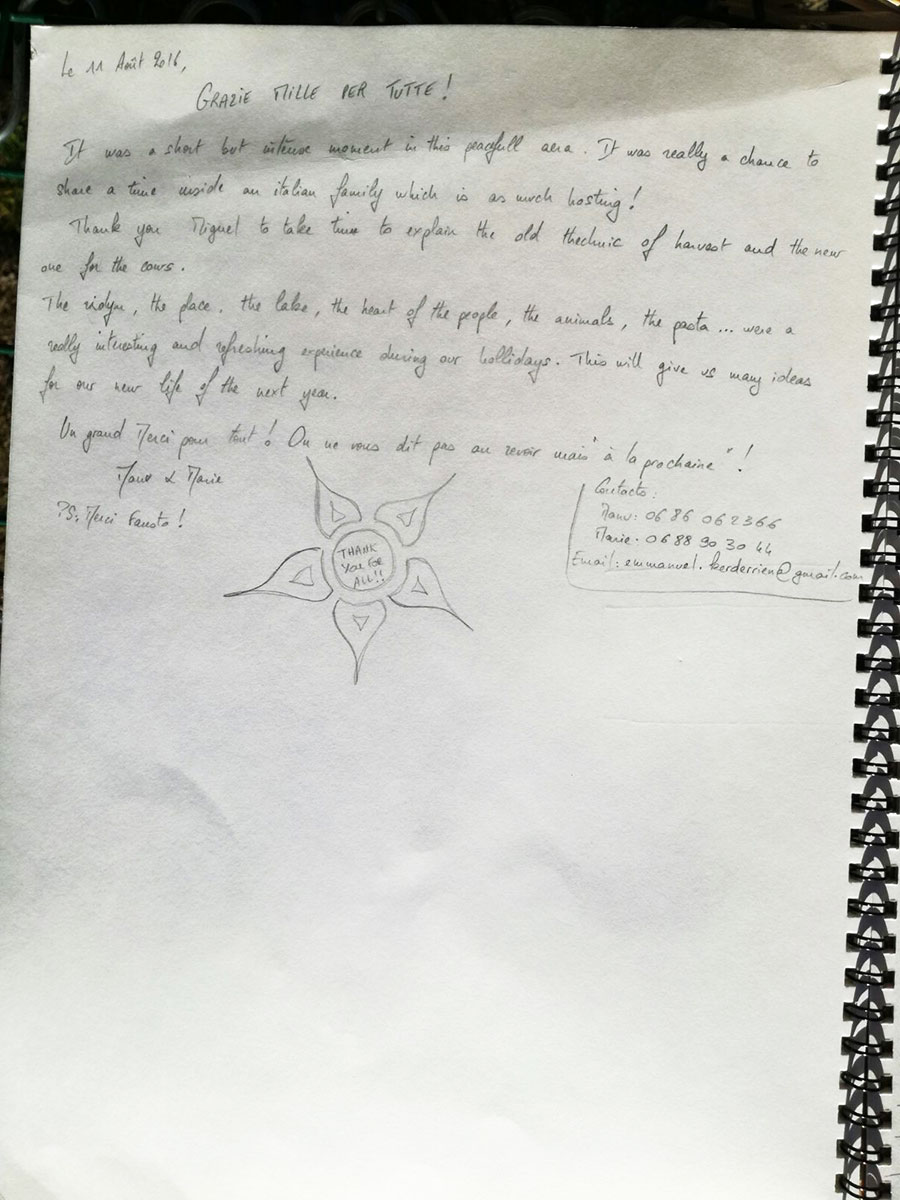 Le 11 Août 2016,
GRAZIE MILLE PER TUTTE !
It was a short but intense moment in this peacefull aera. It was really a chance to
share a time inside an italian family which is as much hosting !
Thank you Miguel to take time to explain the old thechnic of harvest and the new
one for the cows.
The, the place, the lake, the heart of the people, the animals, the pasta ... were a
really interesting and refreshing experience during our hollidays. This will give us many ideas
for our new life of the next year.
Un grand Merci pour tout ! On ne vous dit pas au revoir mais "à la prochaine" !
Manu & Marie
PS: Merci Fausto !
THANK
YOU FOR
ALL!!
Contacts :
Manu: 06 86 06 23 66
Marie. 06 88 90 30 44
Email: emmanuel.kerderrien@gmail.com